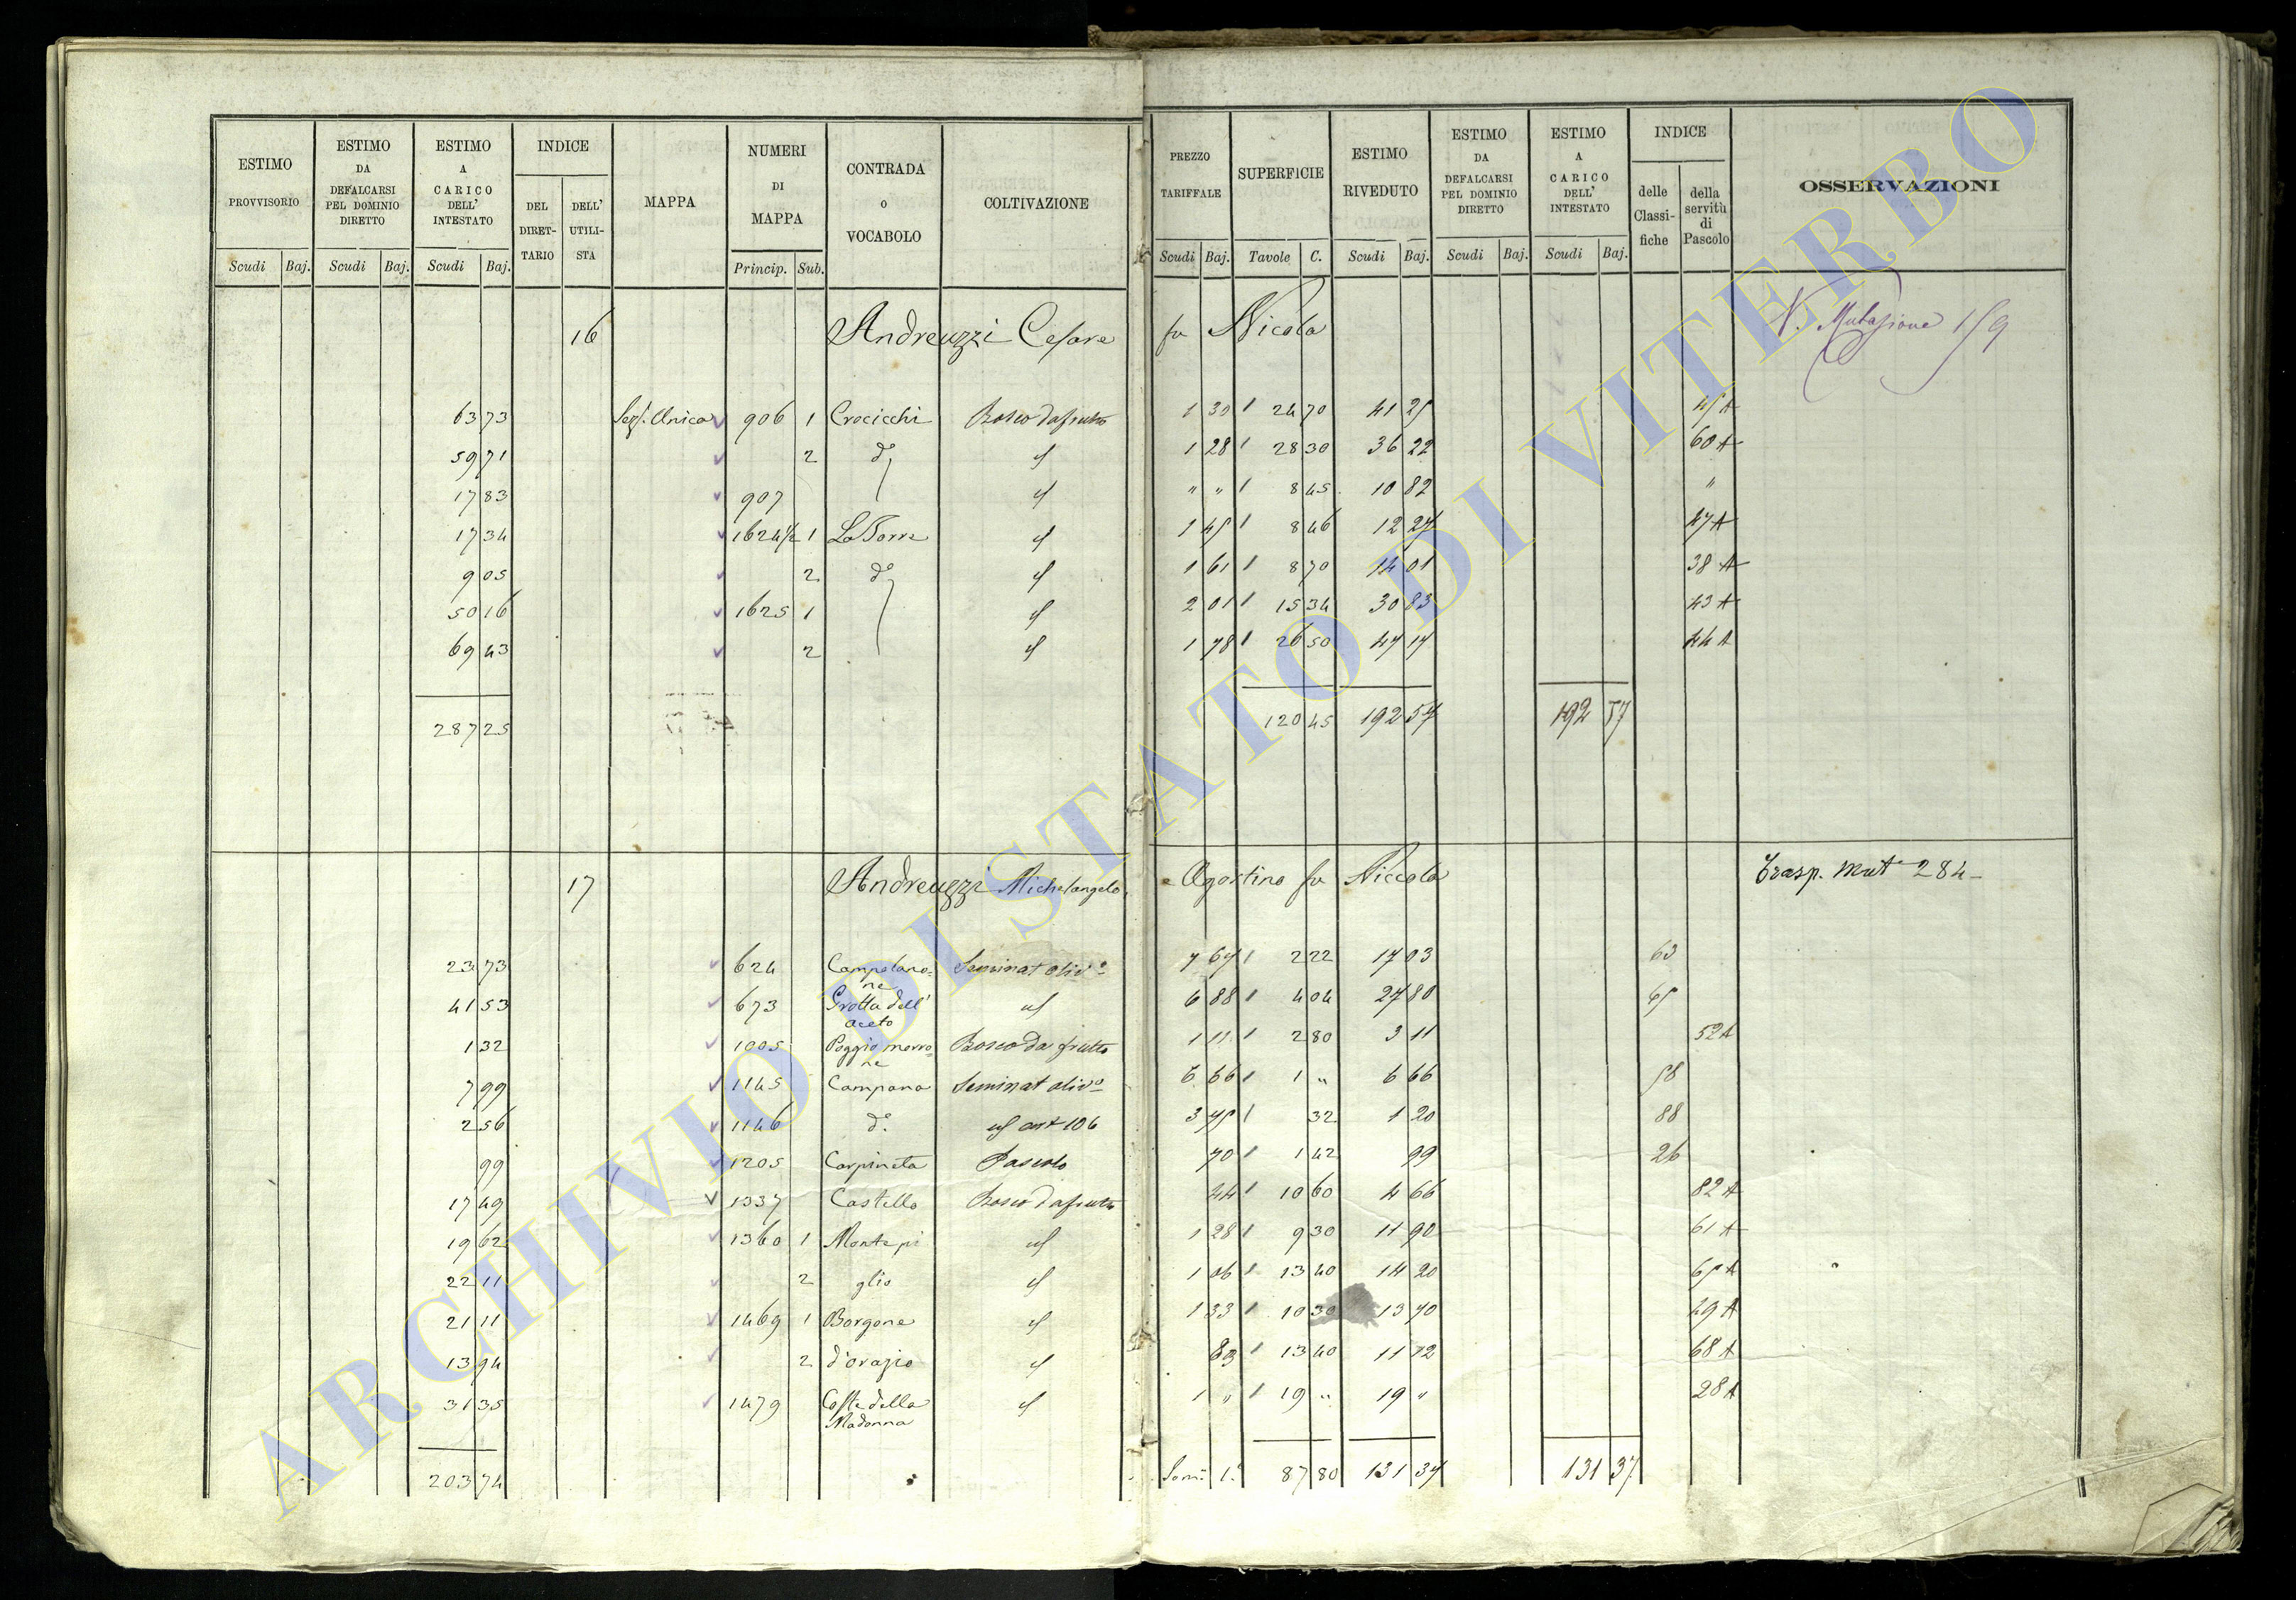 ESTIMO PROVVISORIO | ESTIMO DA DEFALCARSI PEL DOMINIO DIRETTO | ESTIMO A CARICO DELL' INTESTATO | INDICE | MAPPA | NUMERI DI MAPPA | CONTRADA o VOCABOLO | COLTIVAZIONE | PREZZO TARIFFALE | SUPERFICIE | ESTIMO RIVEDUTO | ESTIMO DA DEFALCARSI PEL DOMINIO DIRETTO | ESTIMO A CARICO DELL' INTESTATO | INDICE | OSSERVAZIONI
DEL DIRET-TARIO | DELL' UTILI-STA | delle Classi-fiche | della servitù di Pascolo
Scudi | Baj. | Scudi | Baj. | Scudi | Baj. | Princip. | Sub. | Scudi | Baj. | Tavole | C. | Scudi | Baj. | Scudi | Baj. | Scudi | Baj.
16 Andreuzzi Cesare fu Nicola
V. Mutazione 159
63 73 | Sez. Unica | 906 | 1 | Crocicchi | Bosco da frutto | 24 70 | 41 25 | 45 A
59 71 | 2 | d° | 1 28 | 28 30 | 36 22 | 60 A
17 83 | 907 | " " | 8 45 | 10 82 | "
17 34 | 1624½ | 1 | La Torre | 1 45 | 8 46 | 12 27 | 47 A
9 05 | 2 | d° | 1 61 | 8 70 | 14 01 | 38 A
50 16 | 1625 | 1 | 2 01 | 15 34 | 30 83 | 43 A
69 43 | 2 | 1 78 | 26 50 | 47 17 | 44 A
287 25 | 120 45 | 192 57 | 192 57
17 Andreuzzi Michelangelo, e Agostino fu Niccola
Trasp. Mut 284
23 73 | 624 | Campolano=ne | Seminat oliv° | 7 67 | 2 22 | 17 03 | 63
41 53 | 673 | Grotta dell' aceto | 6 88 | 4 04 | 27 80 | 65
1 32 | 1005 | Poggio morro=ne | Bosco da frutto | 1 11 | 2 80 | 3 11 | 52 A
7 99 | 1145 | Campana | Seminat oliv° | 6 66 | 1 " | 6 66 | 58
2 56 | 1146 | d° | art 106 | 3 75 | 32 | 1 20 | 88
99 | 1205 | Carpineta | Pascolo | 70 | 1 42 | 99 | 26
17 49 | 1337 | Castello | Bosco da frutto | 44 | 10 60 | 4 66 | 82 A
19 62 | 1360 | 1 | Montepi | 1 28 | 9 30 | 11 90 | 61 A
22 11 | 2 | glio | 1 06 | 13 40 | 14 20 | 65 A
21 11 | 1469 | 1 | Borgone | 1 33 | 10 30 | 13 70 | 49 A
13 94 | 2 | d'orazio | 83 | 13 40 | 11 12 | 68 A
31 35 | 1479 | Coste della Madonna | 1 " | 19 " | 19 " | 28 A
203 74 | 87 80 | 131 37 | 131 37
ARCHIVIO DI STATO DI VITERBO